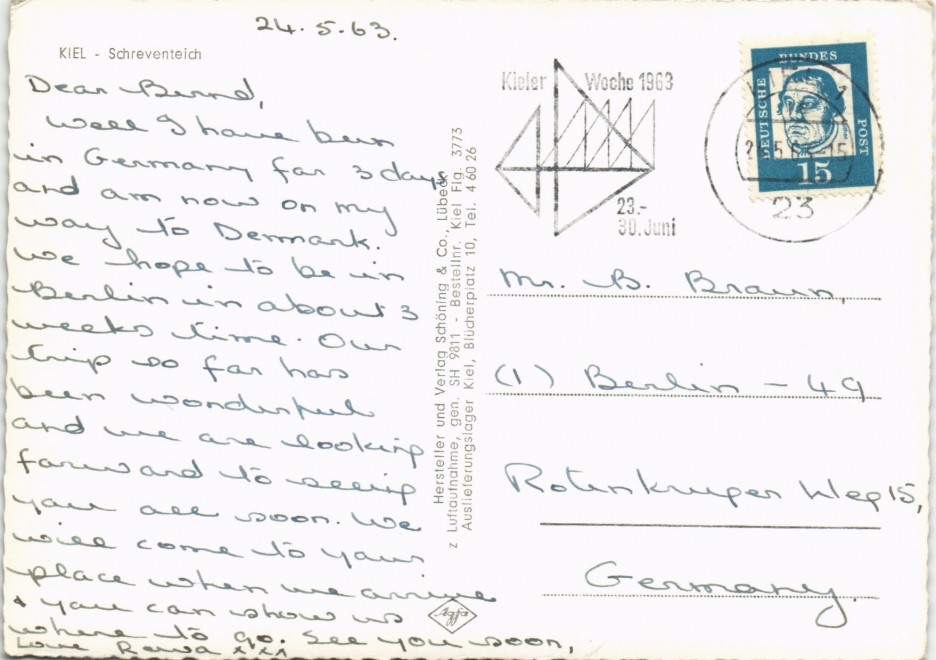 24.5.63.
KIEL - Schreventeich
Dear Bernd,
Well I have been
in Germany for 3 days
and am now on my
way to Denmark.
We hope to be in
Berlin in about 3
weeks time. Our
trip so far has
been wonderful
and we are looking
forward to seeing
you all soon. We
will come to your
place when we arrive
+ you can show us
where to go. See you soon,
Love Rewa xxx
Hersteller und Verlag Schöning & Co., Lübeck
z Luftaufnahme, gen. SH 9811 - Bestellnr. Kiel Flg. 3773
Auslieferungslager Kiel, Blücherplatz 10, Tel. 4 60 26
agfa
Kieler Woche 1963
23.-
30. Juni
KIEL 1
23
DEUTSCHE
BUNDES
POST
15
Mr. B. Braun,
(1) Berlin - 49
Rotenkruger Weg 15,
Germany.